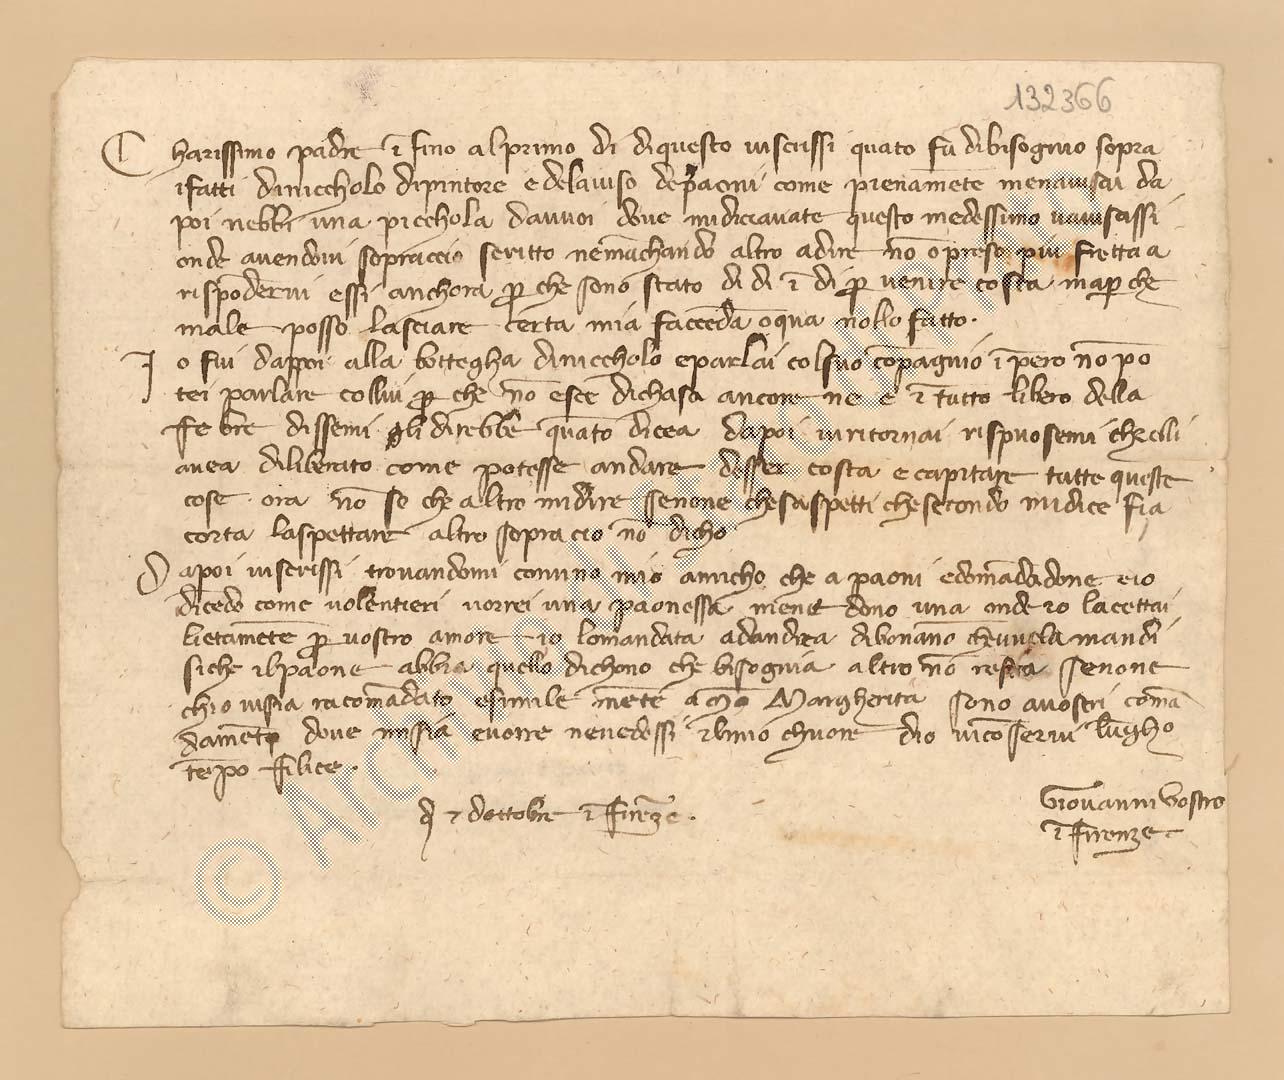 132366
Charissimo padre ī fino al primo di di questo viscrissi quāto fu di bisognio sopra
i fatti di niccholo dipintore e delaviso de paoni come pienamēte menavisai da
poi nebbi una picchola da vvoi dove mi diciavate questo medessimo vavisassi
onde avendovi sopracciò scritto ne māchando altro a dire nō o preso piu fretta a
rispōdervi essi anchora perche sono stato di di ī di per venire costa ma perche
male posso lasciare cierta mia faccēda o qua nollo fatto.
Io fui dappoi alla bottegha di niccholo e parlai col suo cōpagnio ī pero nō po
tei parlare collui perche nō esce di chasa ancore ne e ī tutto libero della
febre dissemi gli direbbe quāto dicea da poi vi ritornai rispuosemi che elli
avea diliberato come potesse andare desser costa e capitare tutte queste
cose ora nō so che altro midire senone che saspetti che secondo mi dice fia
corta laspettare altro sopracio nō dicho
Dapoi viscrissi trovandomi con uno mio amicho che a paoni e domādādone e io
dicēdo come volentieri vorrei una paonessa mene dono una onde io laccettai
lietamēte per vostro amore e io lo mandata ad andrea di bonāno che vve la mandi
siche il paone abbia quello dichono che bisognia altro nō resta senone
chio vi sia racomādato e simile mēte a mōa Margherita sono a vostri comā
damēti dove mi sia e vorre ne vedessi il mio chuore dio vi cōservi lūgho
tēpo filice.
a dì 7 dottobre ī Firēze.
Giovanni Vostro
ī Firenze
© Archivio di Stato